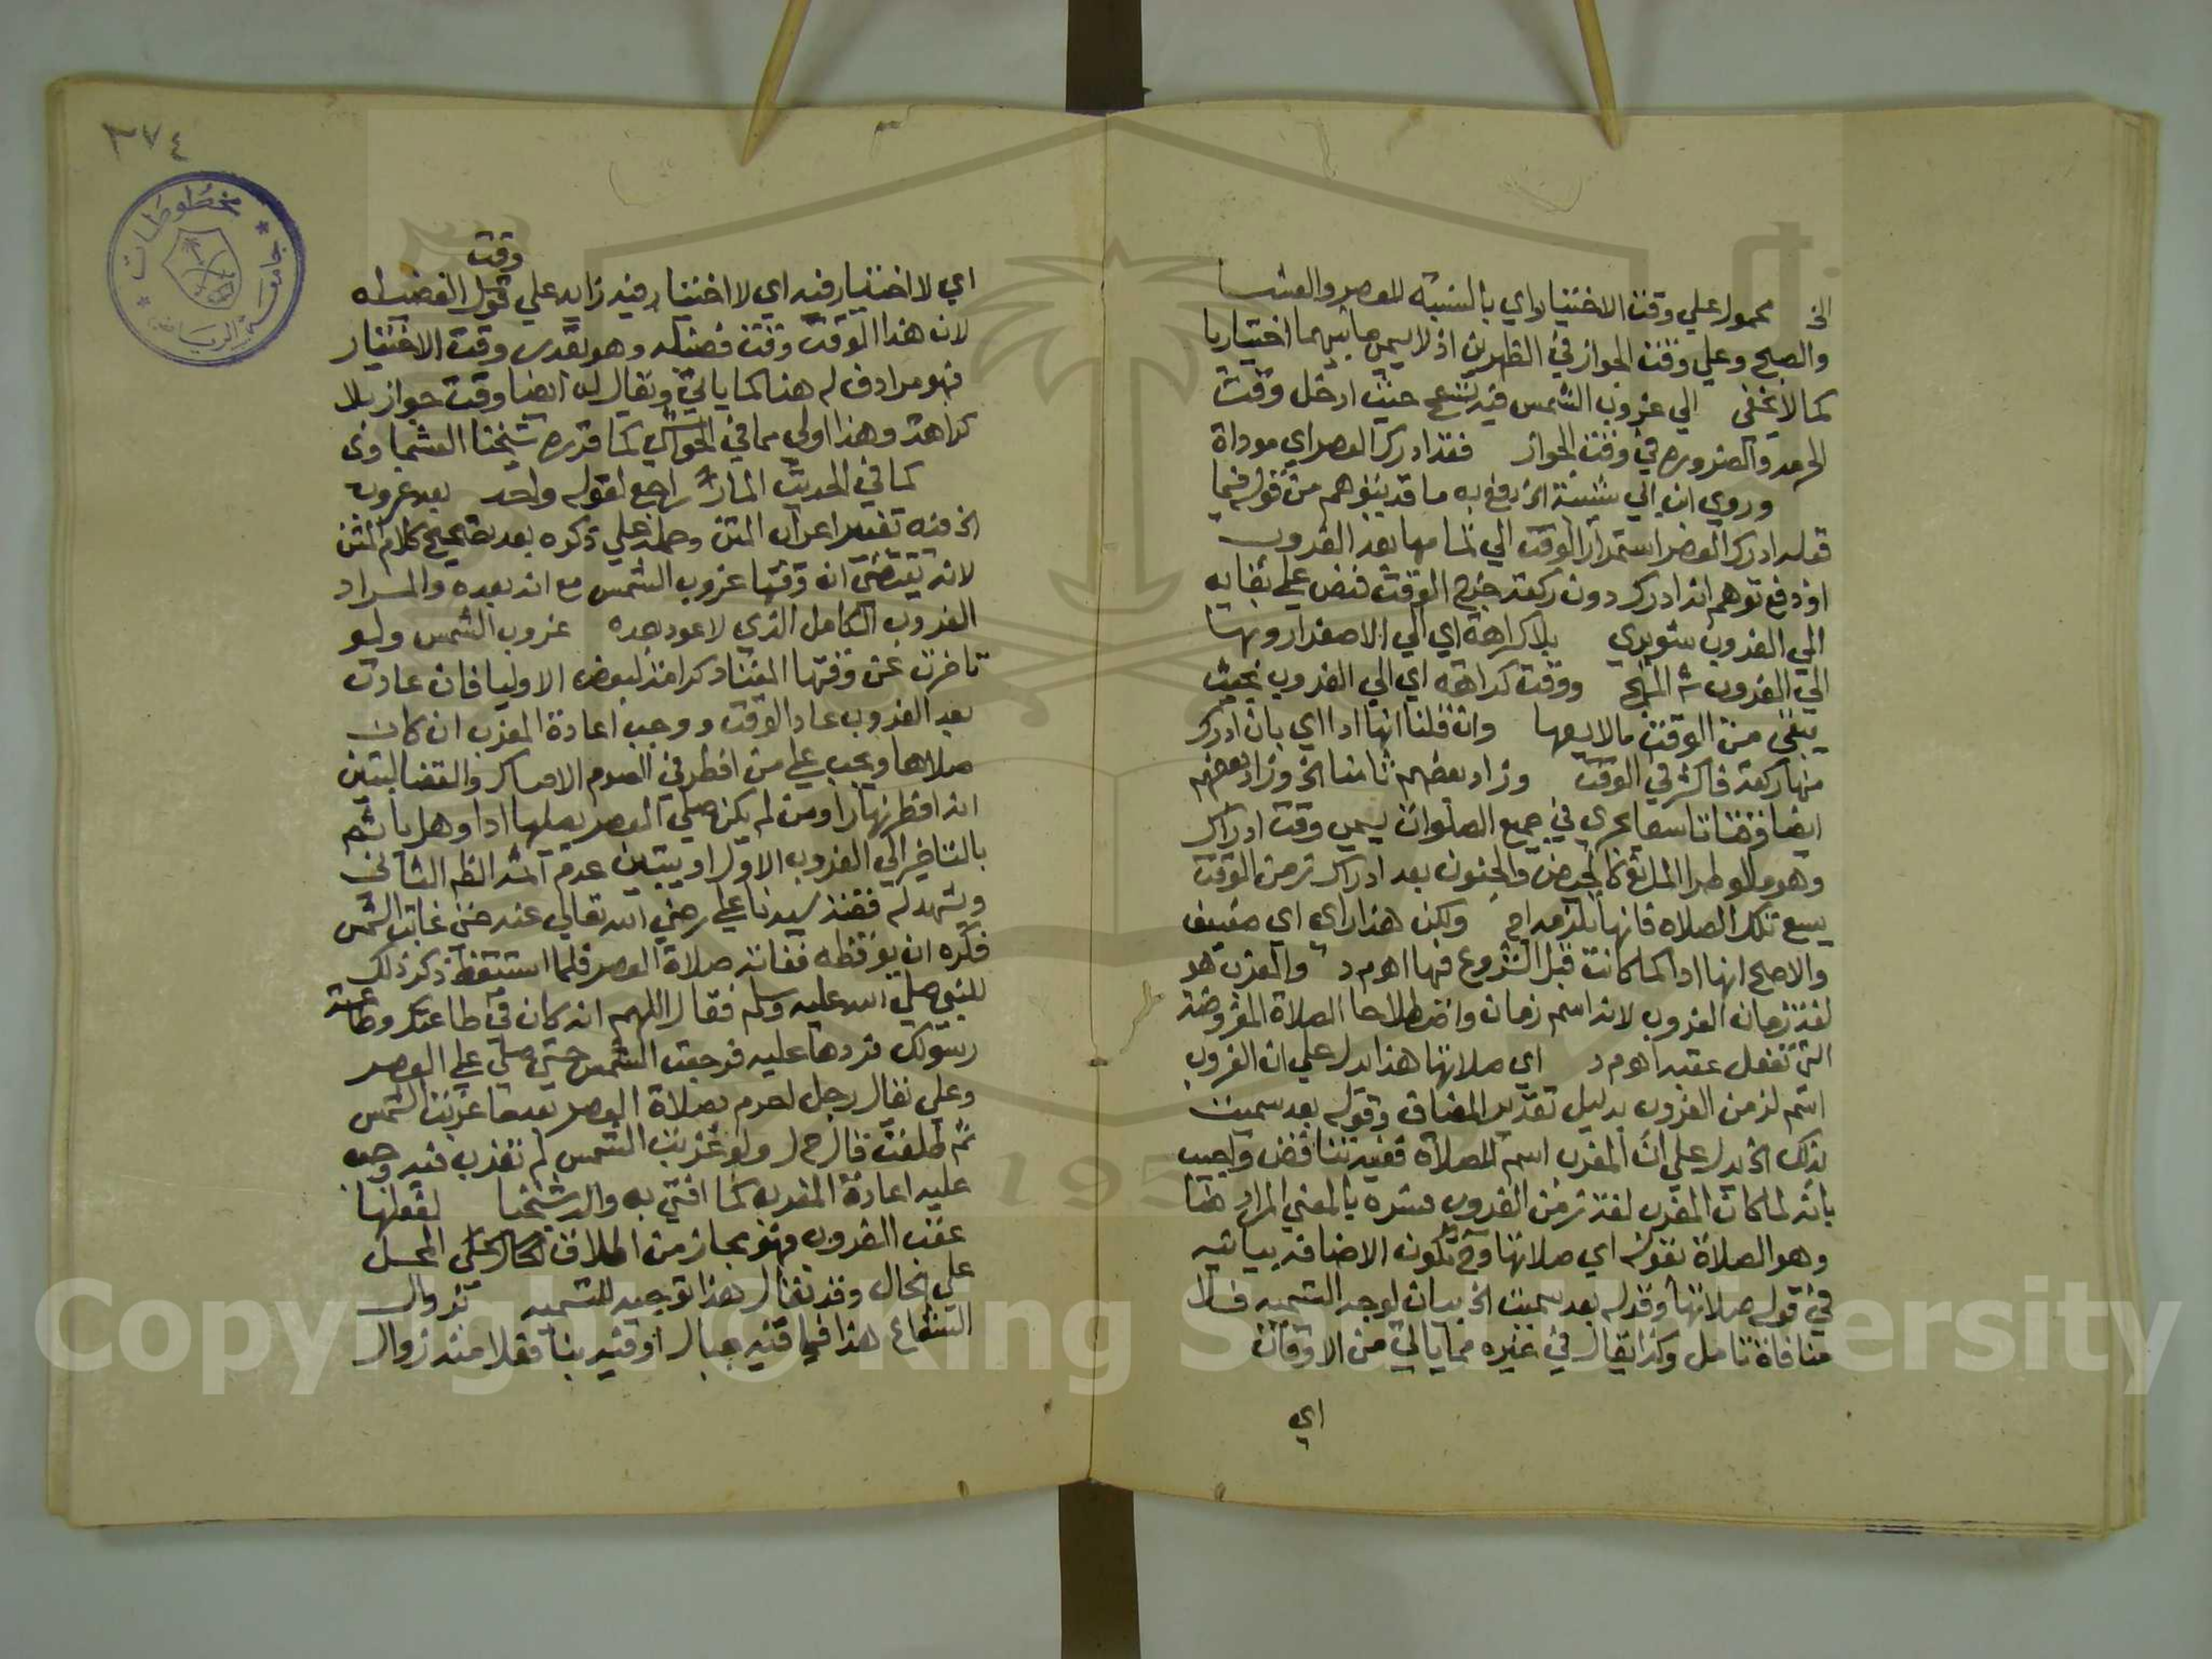 الخ محمول علي وقت الاختيار اي بالنسبة للعصر والعشا
والصبح وعلي وقت الجواز في الظهرين اذ لا يسمي ما بينهما اختياريا
كما لا يخفي الي غروب الشمس فيه تسمح حيث ادخل وقت
الحرمه والضروره في وقت الجواز فقد ادرك العصر اي موداة
وروي ابن ابي شيبة الخ دفع به ما قد يتوهم من قوله فيما
قبله ادرك العصر استمرار الوقت الي تمامها بعد الغروب
او دفع توهم انه ادرك دون ركعة خرج الوقت فنص علي بقايه
الي الغروب شوبري بلا كراهة اي الي الاصفرار وبها
الي الغروب ش المنهج ووقت كراهة اي الي الغروب بحيث
يبقي من الوقت ما لا يسعها وان قلنا انها ادا اي بان ادرك
منها ركعة فاكثر في الوقت وزاد بعضهم ثامنا الخ وزاد بعضهم
ايضا وقتا تاسعا يجري في جميع الصلوات يسمي وقت ادراك
وهو ما لو طرا المانع كالحيض والجنون بعد ادراك زمن الوقت
يسع تلك الصلاه فانها تلزمه ا ح ولكن هذا راي اي ضعيف
والاصح انها ادا كما كانت قبل الشروع فيها اهم د والمغرب هو
لغة زمان الغروب لانه اسم زمان واصطلاحا الصلاة المفروضة
التي تفعل عقبه اهم د اي صلاتها هذا يدل علي ان الغروب
اسم لزمن الغروب بدليل تقدير المضاف وقوله بعد سميت
بذلك الخ يدل علي ان المغرب اسم للصلاة ففيه تناقض واجيب
بانه لما كان المغرب لغة زمن الغروب فسره بالمعني المراد هنا
وهو الصلاة بقوله اي صلاتها وح تكون الاضافه بيانيه
في قوله صلاتها وقوله بعد سميت الخ بيان لوجه التسميه فلا
منافاة تامل وكذا يقال في غيره مما ياتي من الاوقات
اي
٣٧٤
مخطوطات
جامعة الرياض
وقت
اي لا اختيار فيه اي لا اختيار فيه زايد علي الفضيله
لان هذا الوقت وقت فضيله وهو بقدر وقت الاختيار
فهو مرادف له هنا كما ياتي ويقال له ايضا وقت جواز بلا
كراهة وهذا اولي مما في الحواشي كما قرره شيخنا العشماوي
كما في الحديث المار راجع لقوله واحد بعد غروب
الخ فيه تغيير اعراب المتن وحمله علي ذكره بعد تصحيح كلام المتن
لانه يقتضي ان وقتها غروب الشمس مع انه بعده والمراد
الغروب الكامل الذي لا عود بعده غروب الشمس ولو
تاخرت عن وقتها المعتاد كرامة لبعض الاوليا فان عادت
بعد الغروب عاد الوقت ووجب اعادة المغرب ان كان
صلاها ويجب علي من افطر في الصوم الامساك والقضا لتبين
انه افطر نهارا ومن لم يكن صلي العصر يصليها ادا وهل ياثم
بالتاخير الي الغروب الاول او يتبين عدم اثمه الظ الثاني
ويشهد له قصة سيدنا علي رضي الله تعالي عنه حين غابت الشمس
فكره ان يوقظه ففاتته صلاة العصر فلما استيقظ ذكر ذلك
للنبي صلي الله عليه وسلم فقال اللهم انه كان في طاعتك وطاعة
رسولك فردها عليه فرجعت الشمس حتي صلي علي العصر
وعلي يقال رجل احرم بصلاة العصر بعدما غربت الشمس
ثم طلعت قال ح ل ولو غربت الشمس لم تغرب فيه وجب
عليه اعادة المغرب كما افتي به والد شيخنا لفعلها
عقب الغروب فهو مجاز من اطلاق الحال علي المحل
علي الحال وقد يقال هذا توجيه للتسميه بزوال
الشعاع هذا فيما فيه جبال او فيه بنا فعلامته زوال
Copyright © King Saud University
1957